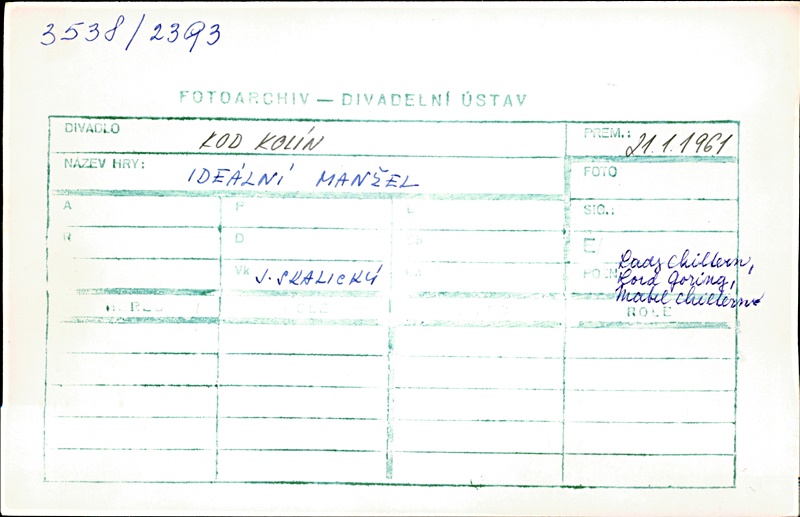 3538/2393
FOTOARCHIV — DIVADELNÍ ÚSTAV
DIVADLO KOD KOLÍN PREM.: 21.1.1961
NÁZEV HRY: IDEÁLNÍ MANŽEL FOTO
A P SIG.:
R D
Vk J. SKALICKÝ
Lady Chiltern,
Lord Goring,
Mabel Chiltern
ROLE